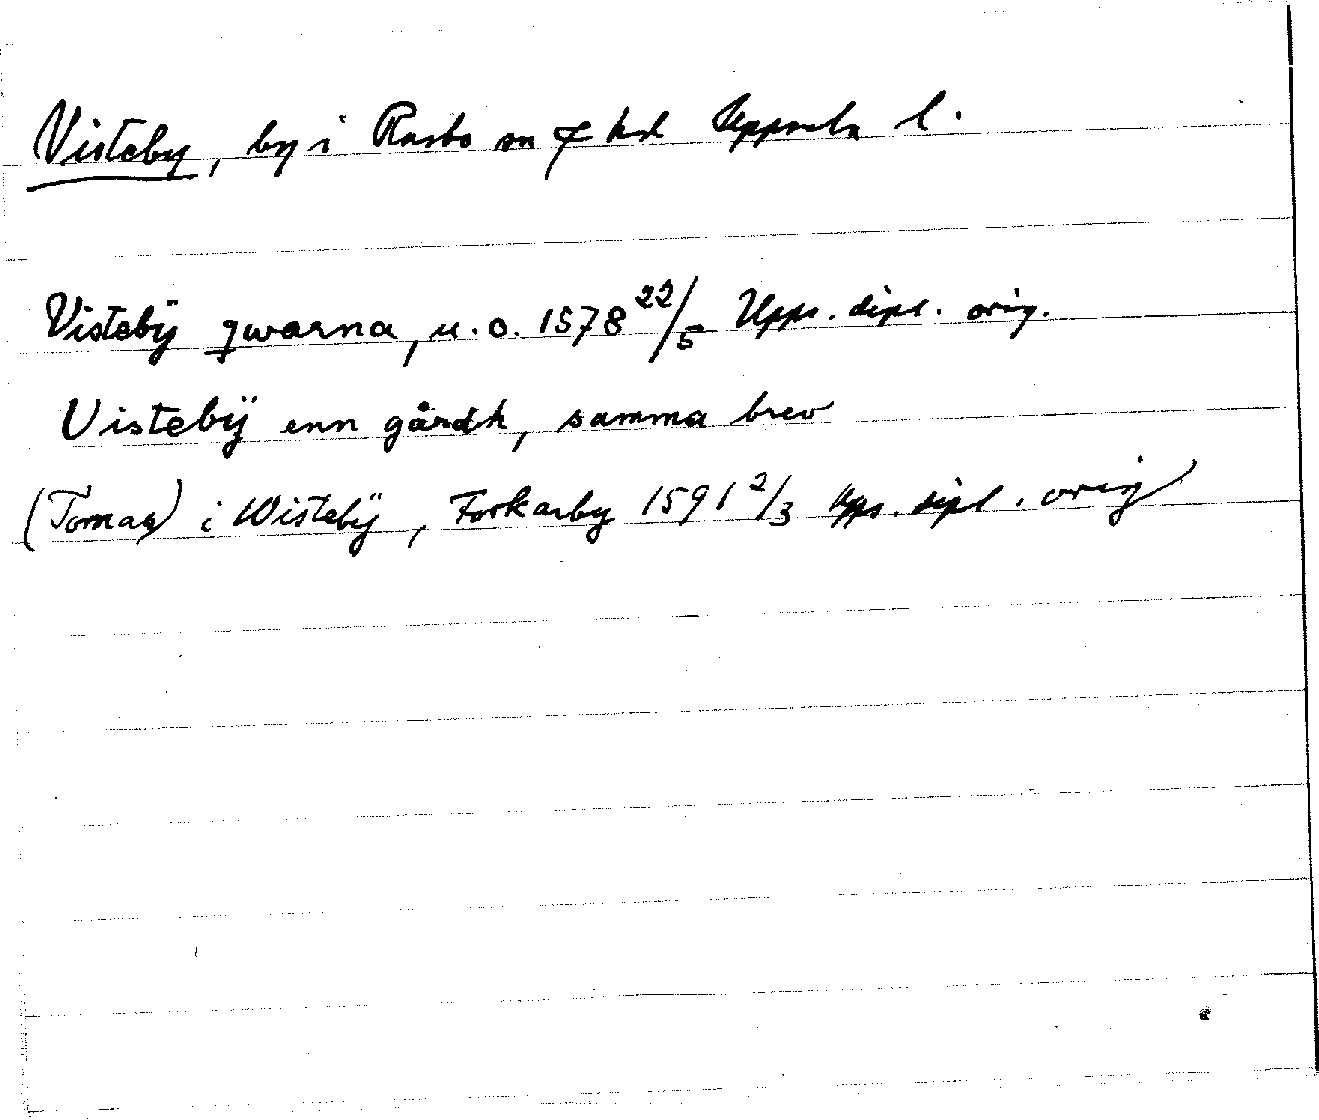 Visteby, by i Rasbo sn & hd Uppsala l.
Vistebÿ qwarna, u. o. 1578 22/5 Upps. dipl. orig.
Uistebÿ enn gårdh, samma brev
(Tomas) i Wistebÿ, Forkarby 1591 2/3 Upps. dipl. orig